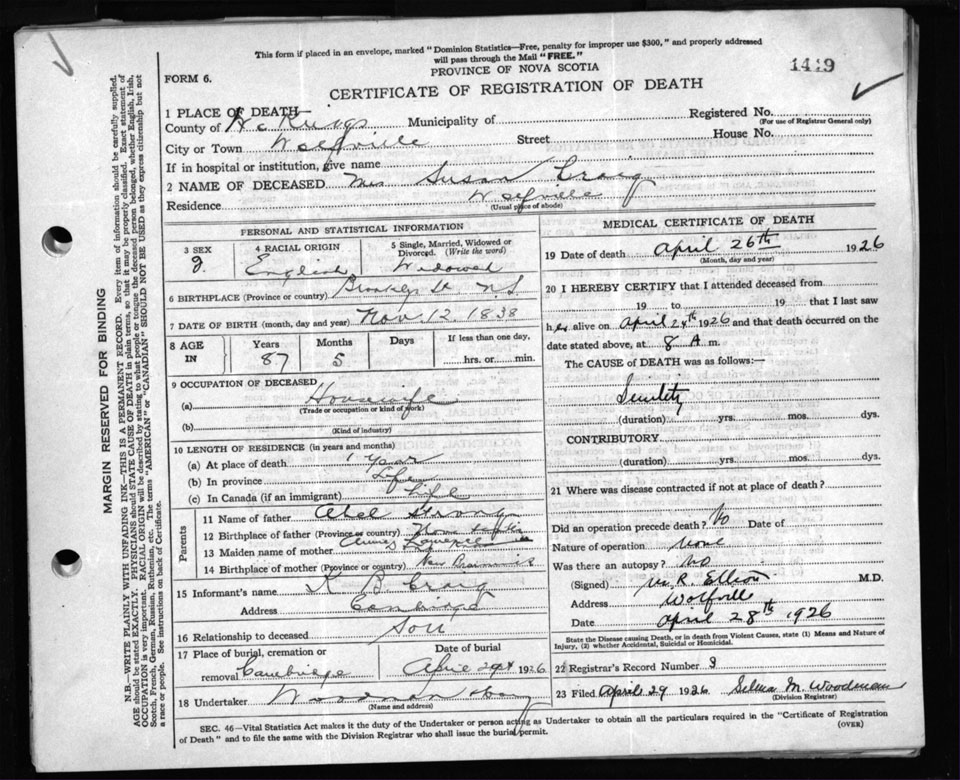 This form if placed in an envelope, marked "Dominion Statistics—Free, penalty for improper use $300," and properly addressed
will pass through the Mail "FREE."
PROVINCE OF NOVA SCOTIA
1449
FORM 6.
CERTIFICATE OF REGISTRATION OF DEATH
1 PLACE OF DEATH
Registered No.
(For use of Registrar General only)
County of Kings Municipality of
City or Town Wolfville Street House No.
If in hospital or institution, give name
2 NAME OF DECEASED Mrs Susan Craig
Residence Wolfville
(Usual place of abode)
PERSONAL AND STATISTICAL INFORMATION
3 SEX
4 RACIAL ORIGIN English
5 Single, Married, Widowed or Divorced. (Write the word) Widowed
6 BIRTHPLACE (Province or country) Brooklyn St. N.S.
7 DATE OF BIRTH (month, day and year) Nov. 12. 1838
8 AGE IN Years Months Days If less than one day,
87 5 hrs. or min.
9 OCCUPATION OF DECEASED
(a) Housewife
(Trade or occupation or kind of work)
(b)
(Kind of industry)
10 LENGTH OF RESIDENCE (in years and months)
(a) At place of death 1 Year
(b) In province Life
(c) In Canada (if an immigrant) Life
Parents
11 Name of father Abel Strong
12 Birthplace of father (Province or country) Nova Scotia
13 Maiden name of mother
14 Birthplace of mother (Province or country) New Brunswick
15 Informant's name K B Craig
Address Cambridge
16 Relationship to deceased Son
17 Place of burial, cremation or removal Cambridge
Date of burial April 29th 1926
18 Undertaker Woodman
(Name and address)
MEDICAL CERTIFICATE OF DEATH
19 Date of death April 26th 1926
(Month, day and year)
20 I HEREBY CERTIFY that I attended deceased from
19 to 19 that I last saw
her alive on April 24th 1926 and that death occurred on
date stated above, at 8 A m.
The CAUSE of DEATH was as follows:—
Senility
(duration) yrs. mos. dys.
CONTRIBUTORY
(duration) yrs. mos. dys.
21 Where was disease contracted if not at place of death?
Did an operation precede death? No Date of
Nature of operation none
Was there an autopsy? no
(Signed) R. Elliott M.D.
Address Wolfville
Date April 28th 1926
State the Disease causing Death, or in death from Violent Causes, state (1) Means and Nature of
Injury, (2) whether Accidental, Suicidal or Homicidal.
22 Registrar's Record Number
23 Filed April 29 1926 Selma M. Woodman
(Division Registrar)
SEC. 46—Vital Statistics Act makes it the duty of the Undertaker or person acting as Undertaker to obtain all the particulars required in the "Certificate of Registration
of Death" and to file the same with the Division Registrar who shall issue the burial permit. (OVER)
MARGIN RESERVED FOR BINDING
N.B.—WRITE PLAINLY WITH UNFADING INK—THIS IS A PERMANENT RECORD. Every item of information should be carefully supplied.
AGE should be stated EXACTLY. PHYSICIANS should STATE CAUSE OF DEATH in plain terms, so that it may be properly classified. Exact statement of
OCCUPATION is very important. RACIAL ORIGIN will be described by stating to what people or tongue the deceased person belonged, whether English, Irish,
Scotch, French, German, Russian, Ruthenian, etc. The terms "AMERICAN" or "CANADIAN" SHOULD NOT BE USED as they express citizenship but not
a race or people. See instructions on back of Certificate.